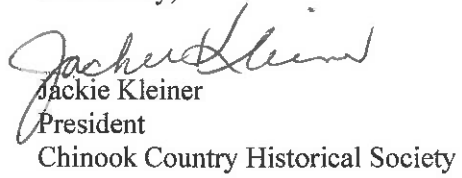 Jackie Kleiner
Jackie Kleiner
President
Chinook Country Historical Society